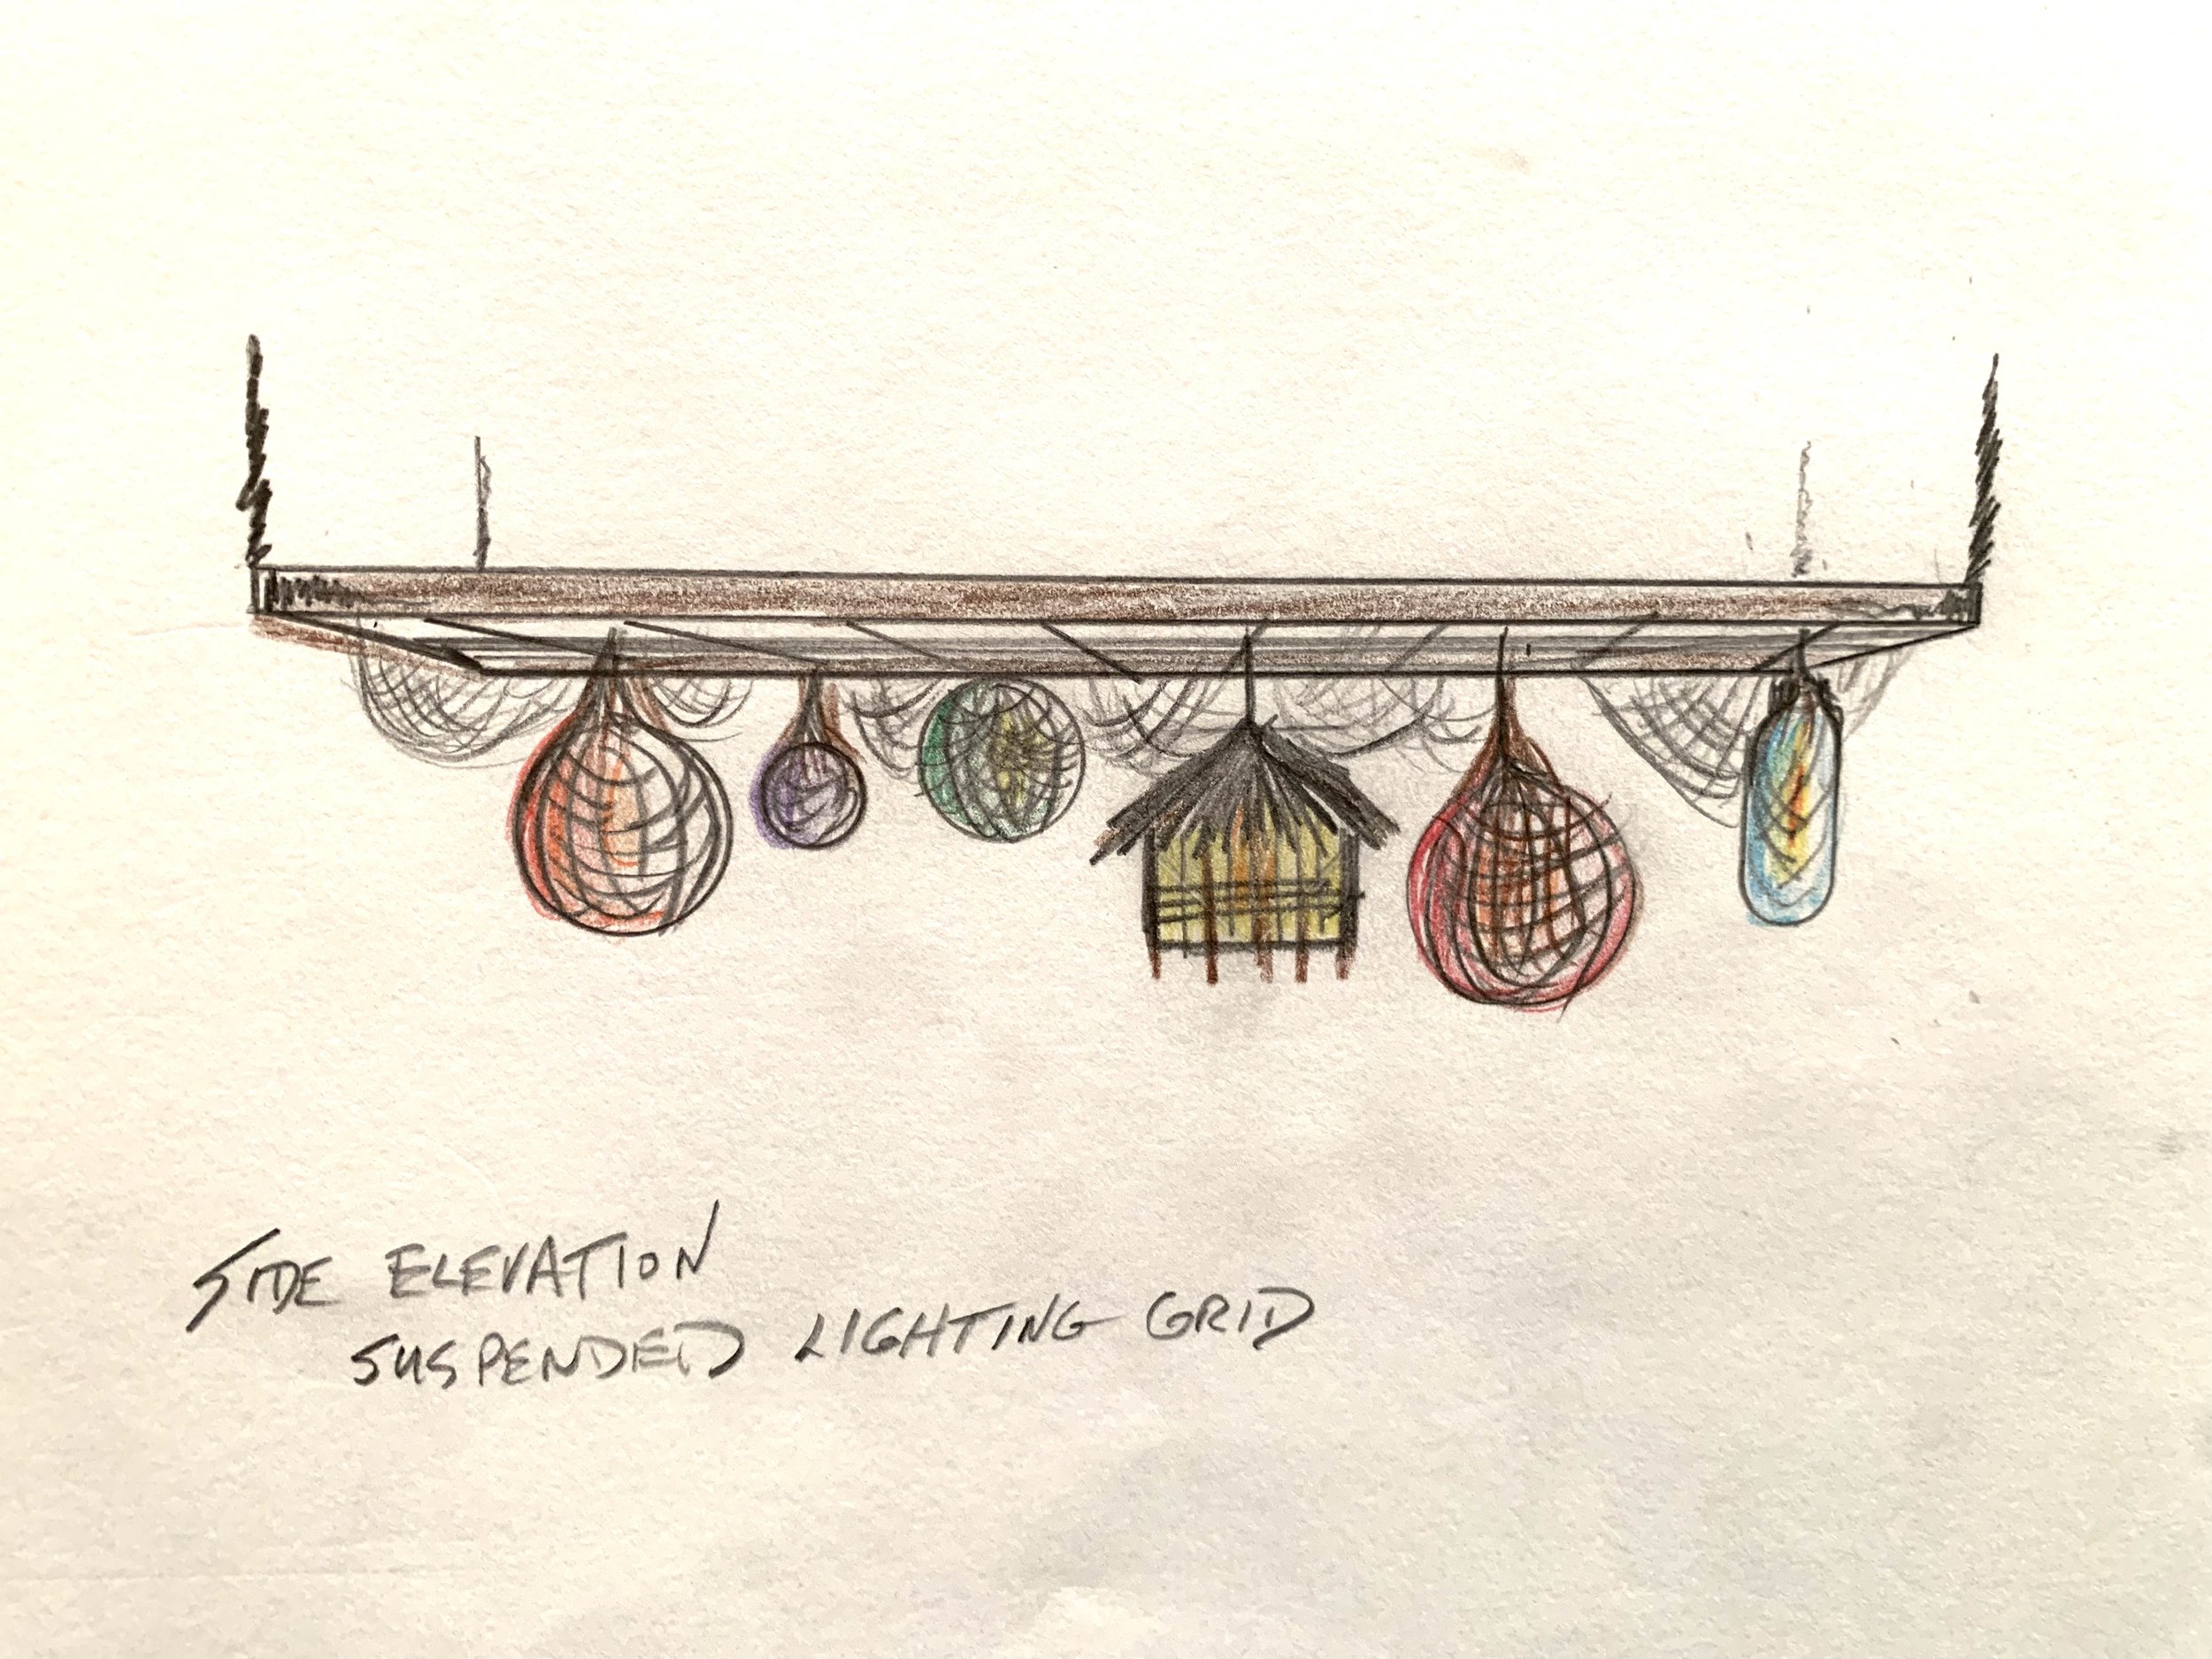 SIDE ELEVATION
SUSPENDED LIGHTING GRID